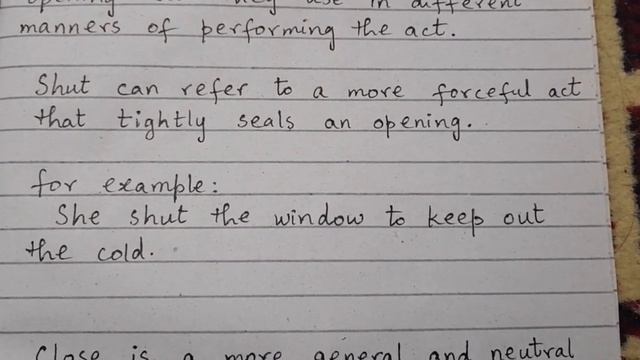 opening they use in different
manners of performing the act.
Shut can refer to a more forceful act
that tightly seals an opening.
for example:
She shut the window to keep out
the cold.
Close is a more general and neutral